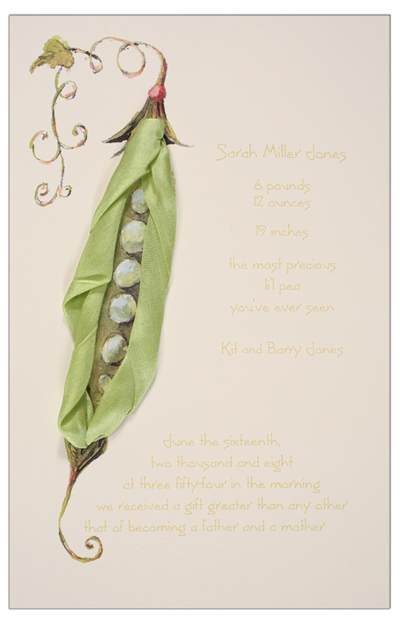 Sarah Miller Jones
6 pounds
12 ounces
19 inches
the most precious
li'l pea
you've ever seen
Kit and Barry Jones
June the sixteenth,
two thousand and eight
at three fifty-four in the morning
we received a gift greater than any other
that of becoming a father and a mother